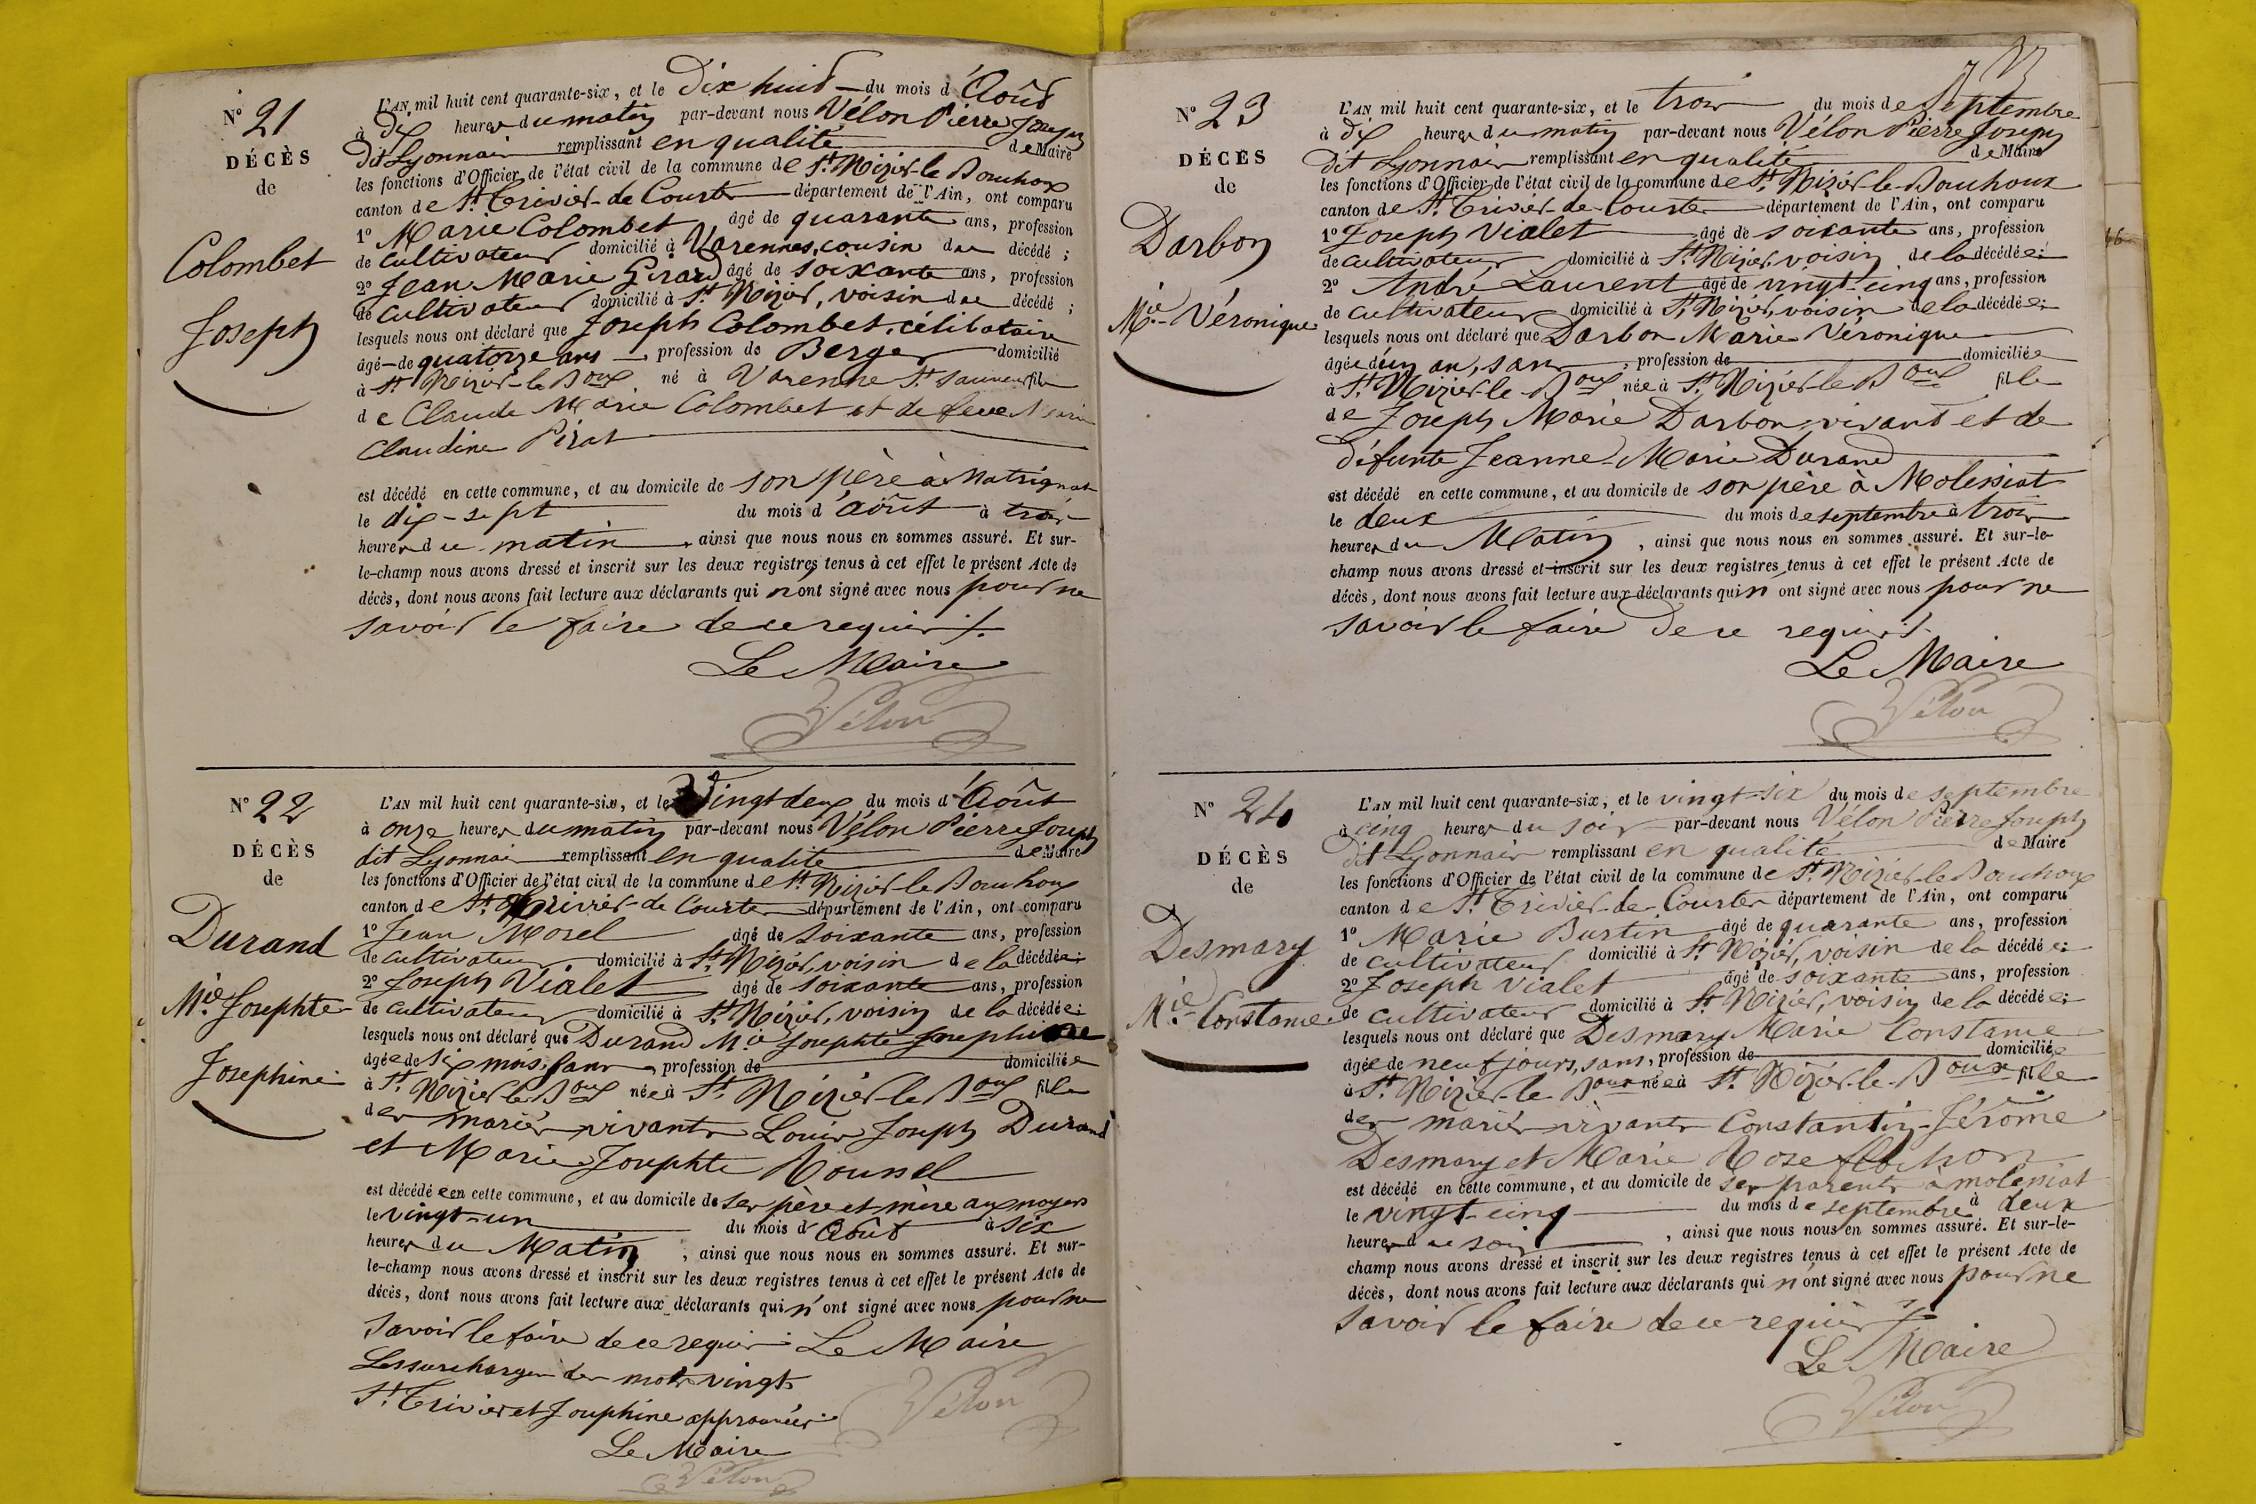 N° 21
DÉCÈS
de
Colombet
Joseph
L'AN mil huit cent quarante-six, et le Dix huit du mois d'Août
à dix heures du matin par-devant nous Vélon Pierre Joseph
dit Lyonnais remplissant en qualité de Maire
les fonctions d'Officier de l'état civil de la commune de St. Nizier-le-Bouhoux
canton de St. Trivier-de-Courtes département de l'Ain, ont comparu
1° Marie Colombet âgé de quarante ans, profession
de cultivateur domicilié à Varennes, cousin du décédé ;
2° Jean Marie Girard âgé de soixante ans, profession
de cultivateur domicilié à St. Nizier, voisin du décédé ;
lesquels nous ont déclaré que Joseph Colombet, célibataire
âgé de quatorze ans, profession de Berger domicilié
à St. Nizier-le-Boux né à Varenne St. Sauveur fils
de Claude Marie Colombet et de feue Marie
Claudine Pirat
est décédé en cette commune, et au domicile de son père à Matrignat
le dix-sept du mois d'août à trois
heures du matin, ainsi que nous nous en sommes assuré. Et sur-
le-champ nous avons dressé et inscrit sur les deux registres tenus à cet effet le présent Acte de
décès, dont nous avons fait lecture aux déclarants qui n'ont signé avec nous pour ne
savoir le faire de ce requis.
Le Maire
Vélon
N° 22
DÉCÈS
de
Durand
Mie. Josephte
Josephine
L'AN mil huit cent quarante-six, et le Vingt deux du mois d'Août
à onze heures du matin par-devant nous Vélon Pierre Joseph
dit Lyonnais remplissant en qualité de Maire
les fonctions d'Officier de l'état civil de la commune de St. Nizier-le-Bouhoux
canton de St. Trivier-de-Courtes département de l'Ain, ont comparu
1° Jean Morel âgé de soixante ans, profession
de cultivateur domicilié à St. Nizier, voisin de la décédée ;
2° Joseph Vialet âgé de soixante ans, profession
de cultivateur domicilié à St. Nizier, voisin de la décédée ;
lesquels nous ont déclaré que Durand Mie Josephte Josephine
âgée de six mois, sans profession de domiciliée
à St. Nizier le Boux née à St. Nizier-le-Boux fille
des mariés vivants Louis Joseph Durand
et Marie Josephte Roussel
est décédée en cette commune, et au domicile de ses père et mère aux noyers
le vingt-un du mois d'Août à six
heures du Matin, ainsi que nous nous en sommes assuré. Et sur-
le-champ nous avons dressé et inscrit sur les deux registres tenus à cet effet le présent Acte de
décès, dont nous avons fait lecture aux déclarants qui n'ont signé avec nous pour ne
savoir le faire de ce requis. Le Maire
Les surcharges des mots vingt
St. Trivier et Josephine approuvées.
Vélon
Le Maire
Vélon
N° 23
DÉCÈS
de
Darbon
Mie. Véronique
L'AN mil huit cent quarante-six, et le trois du mois de Septembre
à dix heures du matin par-devant nous Vélon Pierre Joseph
dit Lyonnais remplissant en qualité de Maire
les fonctions d'Officier de l'état civil de la commune de St. Nizier-le-Bouhoux
canton de St. Trivier-de-Courtes département de l'Ain, ont comparu
1° Joseph Vialet âgé de soixante ans, profession
de cultivateur domicilié à St. Nizier, voisin de la décédée ;
2° André Laurent âgé de vingt-cinq ans, profession
de cultivateur domicilié à St. Nizier, voisin de la décédée ;
lesquels nous ont déclaré que Darbon Marie Véronique
âgée d'un an, sans, profession de domiciliée
à St. Nizier-le-Boux née à St. Nizier-le-Boux fille
de Joseph Marie Darbon vivant et de
défunte Jeanne-Marie Durand
est décédé en cette commune, et au domicile de son père à Molissiat
le deux du mois de septembre à trois
heures du Matin, ainsi que nous nous en sommes assuré. Et sur-le-
champ nous avons dressé et inscrit sur les deux registres tenus à cet effet le présent Acte de
décès, dont nous avons fait lecture aux déclarants qui n'ont signé avec nous pour ne
savoir le faire de ce requis.
Le Maire
Vélon
N° 24
DÉCÈS
de
Desmary
Mie. Constance
L'AN mil huit cent quarante-six, et le vingt-six du mois de septembre
à cinq heures du soir par-devant nous Vélon Pierre Joseph
dit Lyonnais remplissant en qualité de Maire
les fonctions d'Officier de l'état civil de la commune de St. Nizier-le-Bouhoux
canton de St. Trivier-de-Courtes département de l'Ain, ont comparu
1° Marie Burtin âgé de quarante ans, profession
de cultivateur domicilié à St. Nizier, voisin de la décédée ;
2° Joseph Vialet âgé de soixante ans, profession
de cultivateur domicilié à St. Nizier, voisin de la décédée ;
lesquels nous ont déclaré que Desmary Marie Constance
âgée de neuf jours, sans, profession de domiciliée
à St. Nizier-le-Boux née à St. Nizier-le-Boux fille
des mariés vivants Constantin-Jérôme
Desmary et Marie Rose flochon
est décédé en cette commune, et au domicile de ses parents à molissiat
le vingt-cinq du mois de septembre à deux
heures du soir, ainsi que nous nous en sommes assuré. Et sur-le-
champ nous avons dressé et inscrit sur les deux registres tenus à cet effet le présent Acte de
décès, dont nous avons fait lecture aux déclarants qui n'ont signé avec nous pour ne
savoir le faire de ce requis
Le Maire
Vélon